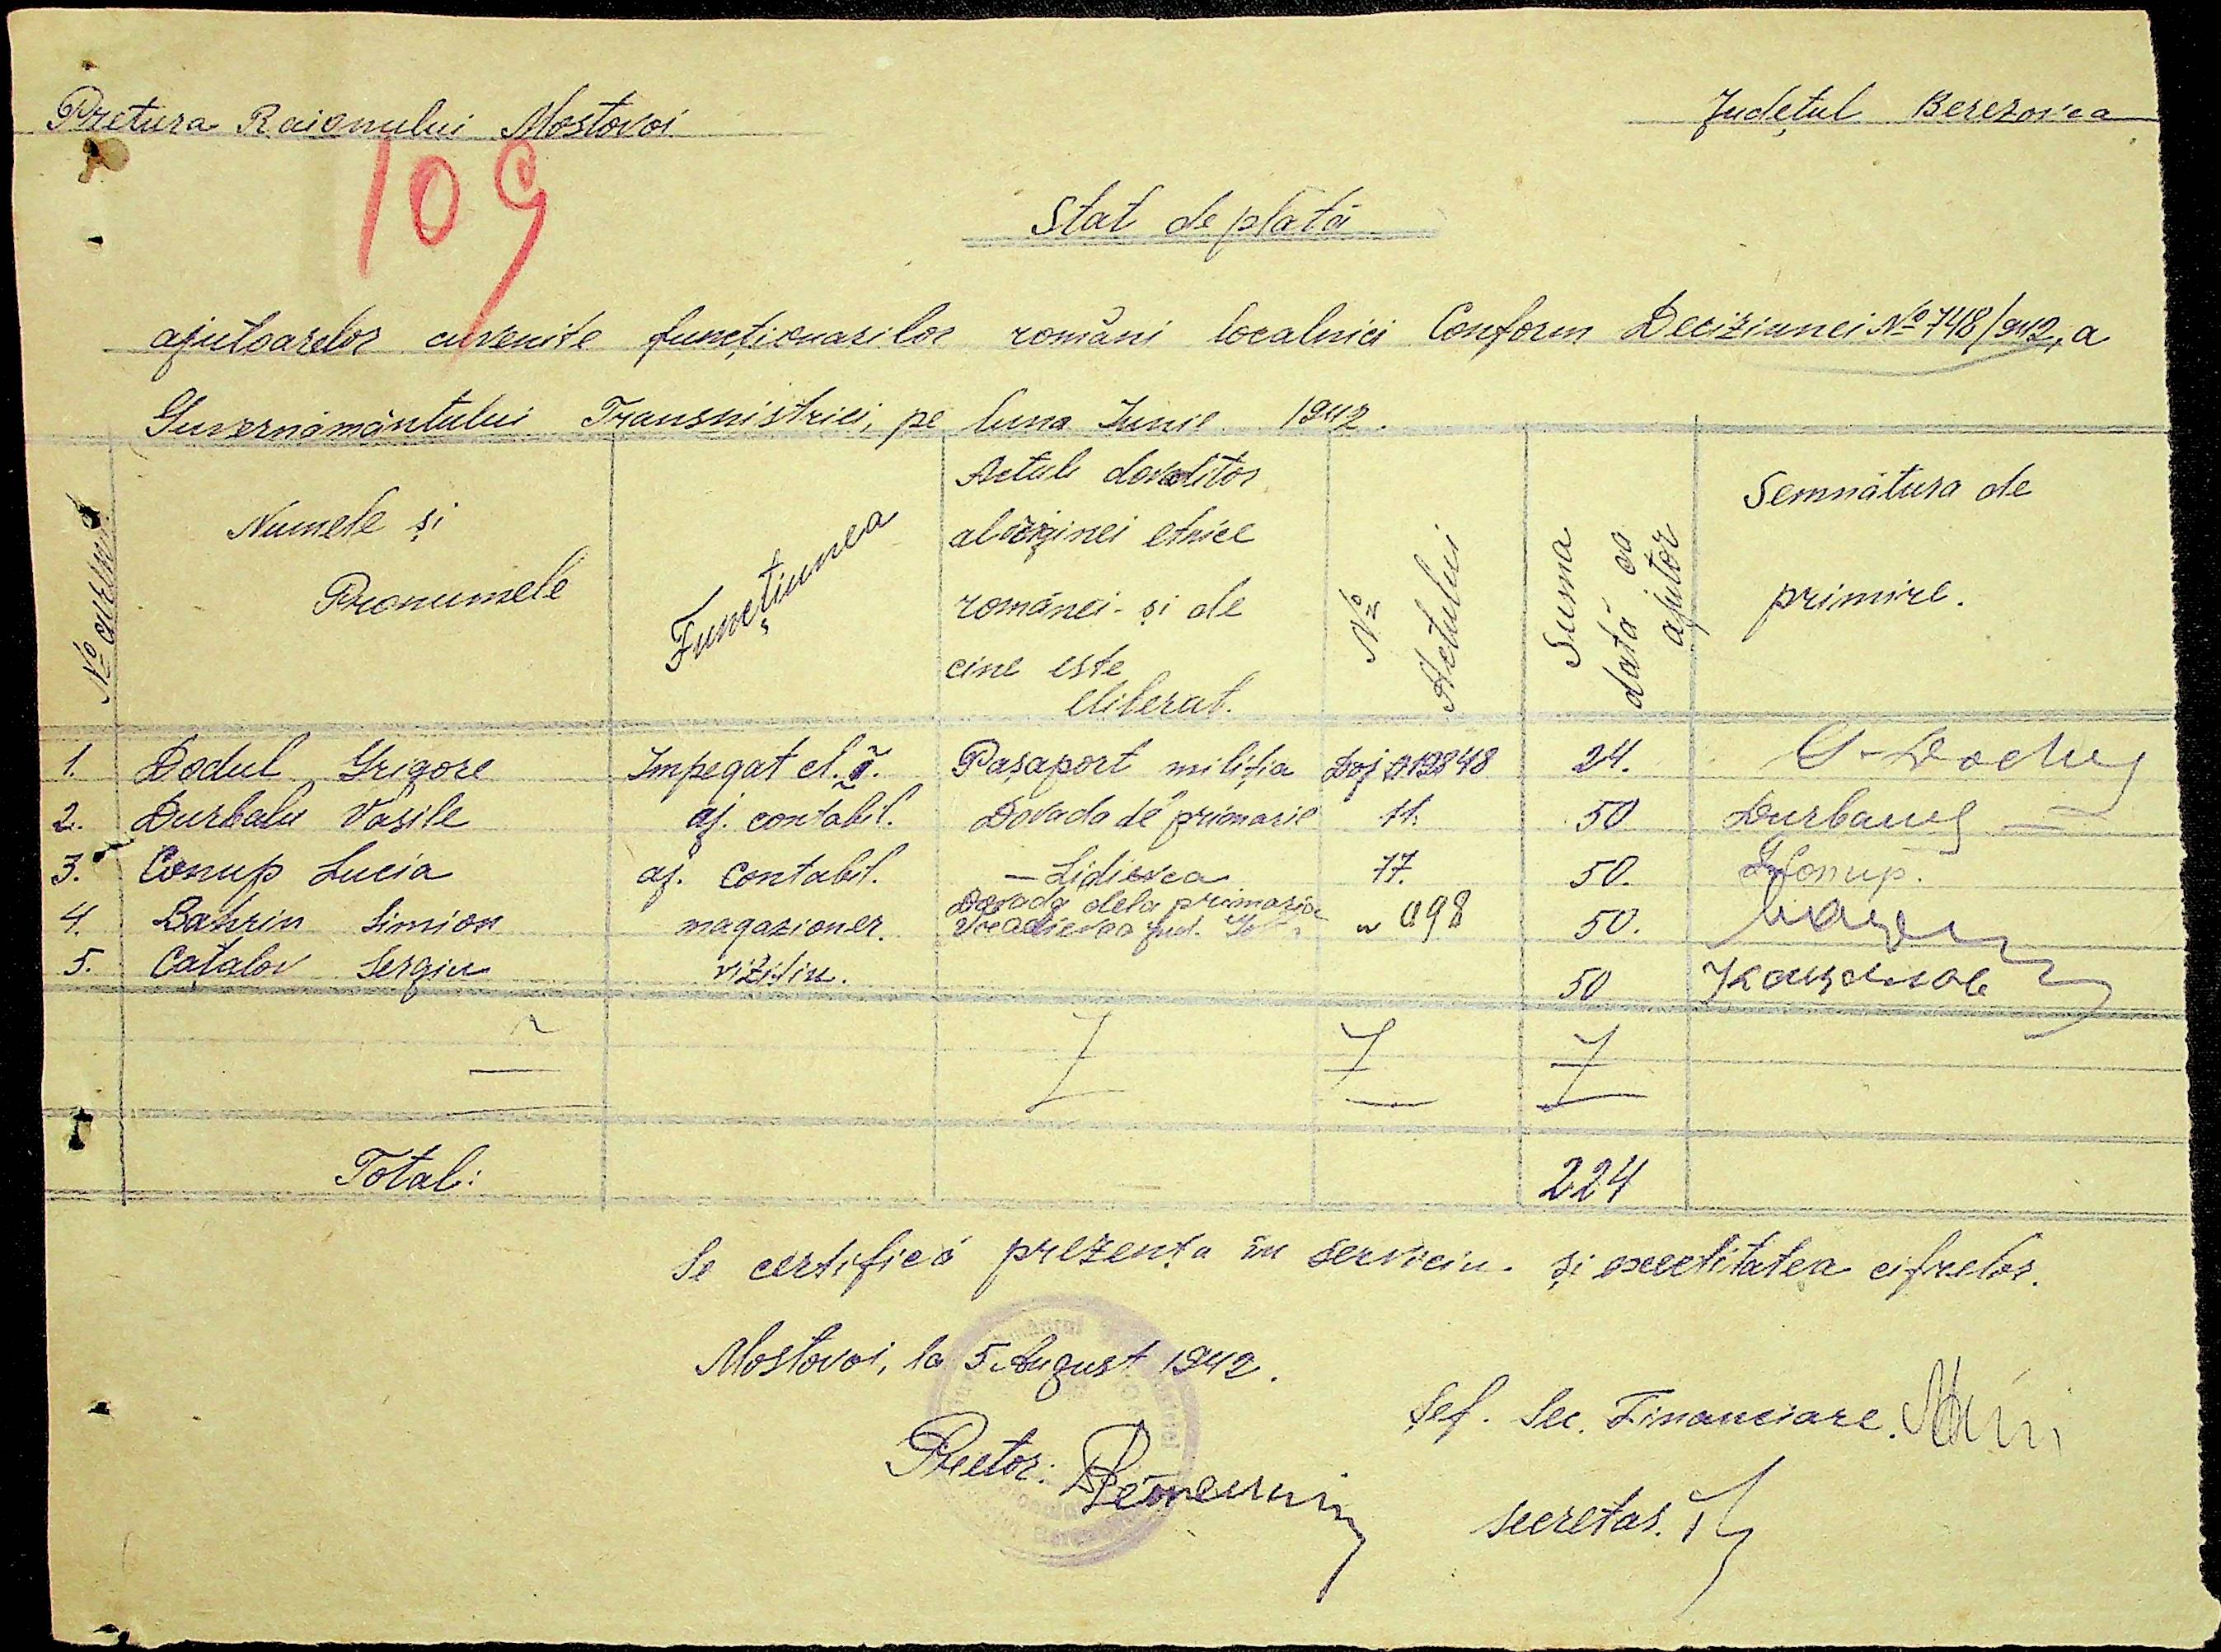 Pretura Raionului Mostovoi
Județul Berezovca
109
Stat de plată
ajutoarelor cuvenite funcționarilor români localnici Conform Deciziunei № 748/942, a
Guvernământului Transnistriei, pe luna Iunie 1942.
№ curent
Numele și
Pronumele
Funcțiunea
Actul doveditor
al originei etnice
românei și de
cine este
eliberat.
№
Actului
Suma
dată ca
ajutor
Semnătura de
primire.
1. Dodul Grigore Impegat cl. I. Pașaport miliția 019848 24.
2. Durbalu Vasile aj. contabil. Dovada de primarie 11. 50
3. Conup Lucia aj. contabil. — Lidievca 77. 50. Conup.
4. Bahrin Simion magazioner. Dovada dela primaria jud. 098 50.
5. Cațalov Sergiu vizitiu. 50
Total: 224
Se certifică prezența în serviciu și exactitatea cifrelor.
Mostovoi, la 5 August 1942.
Șef. Sec. Financiare.
Pretor:
secretar.